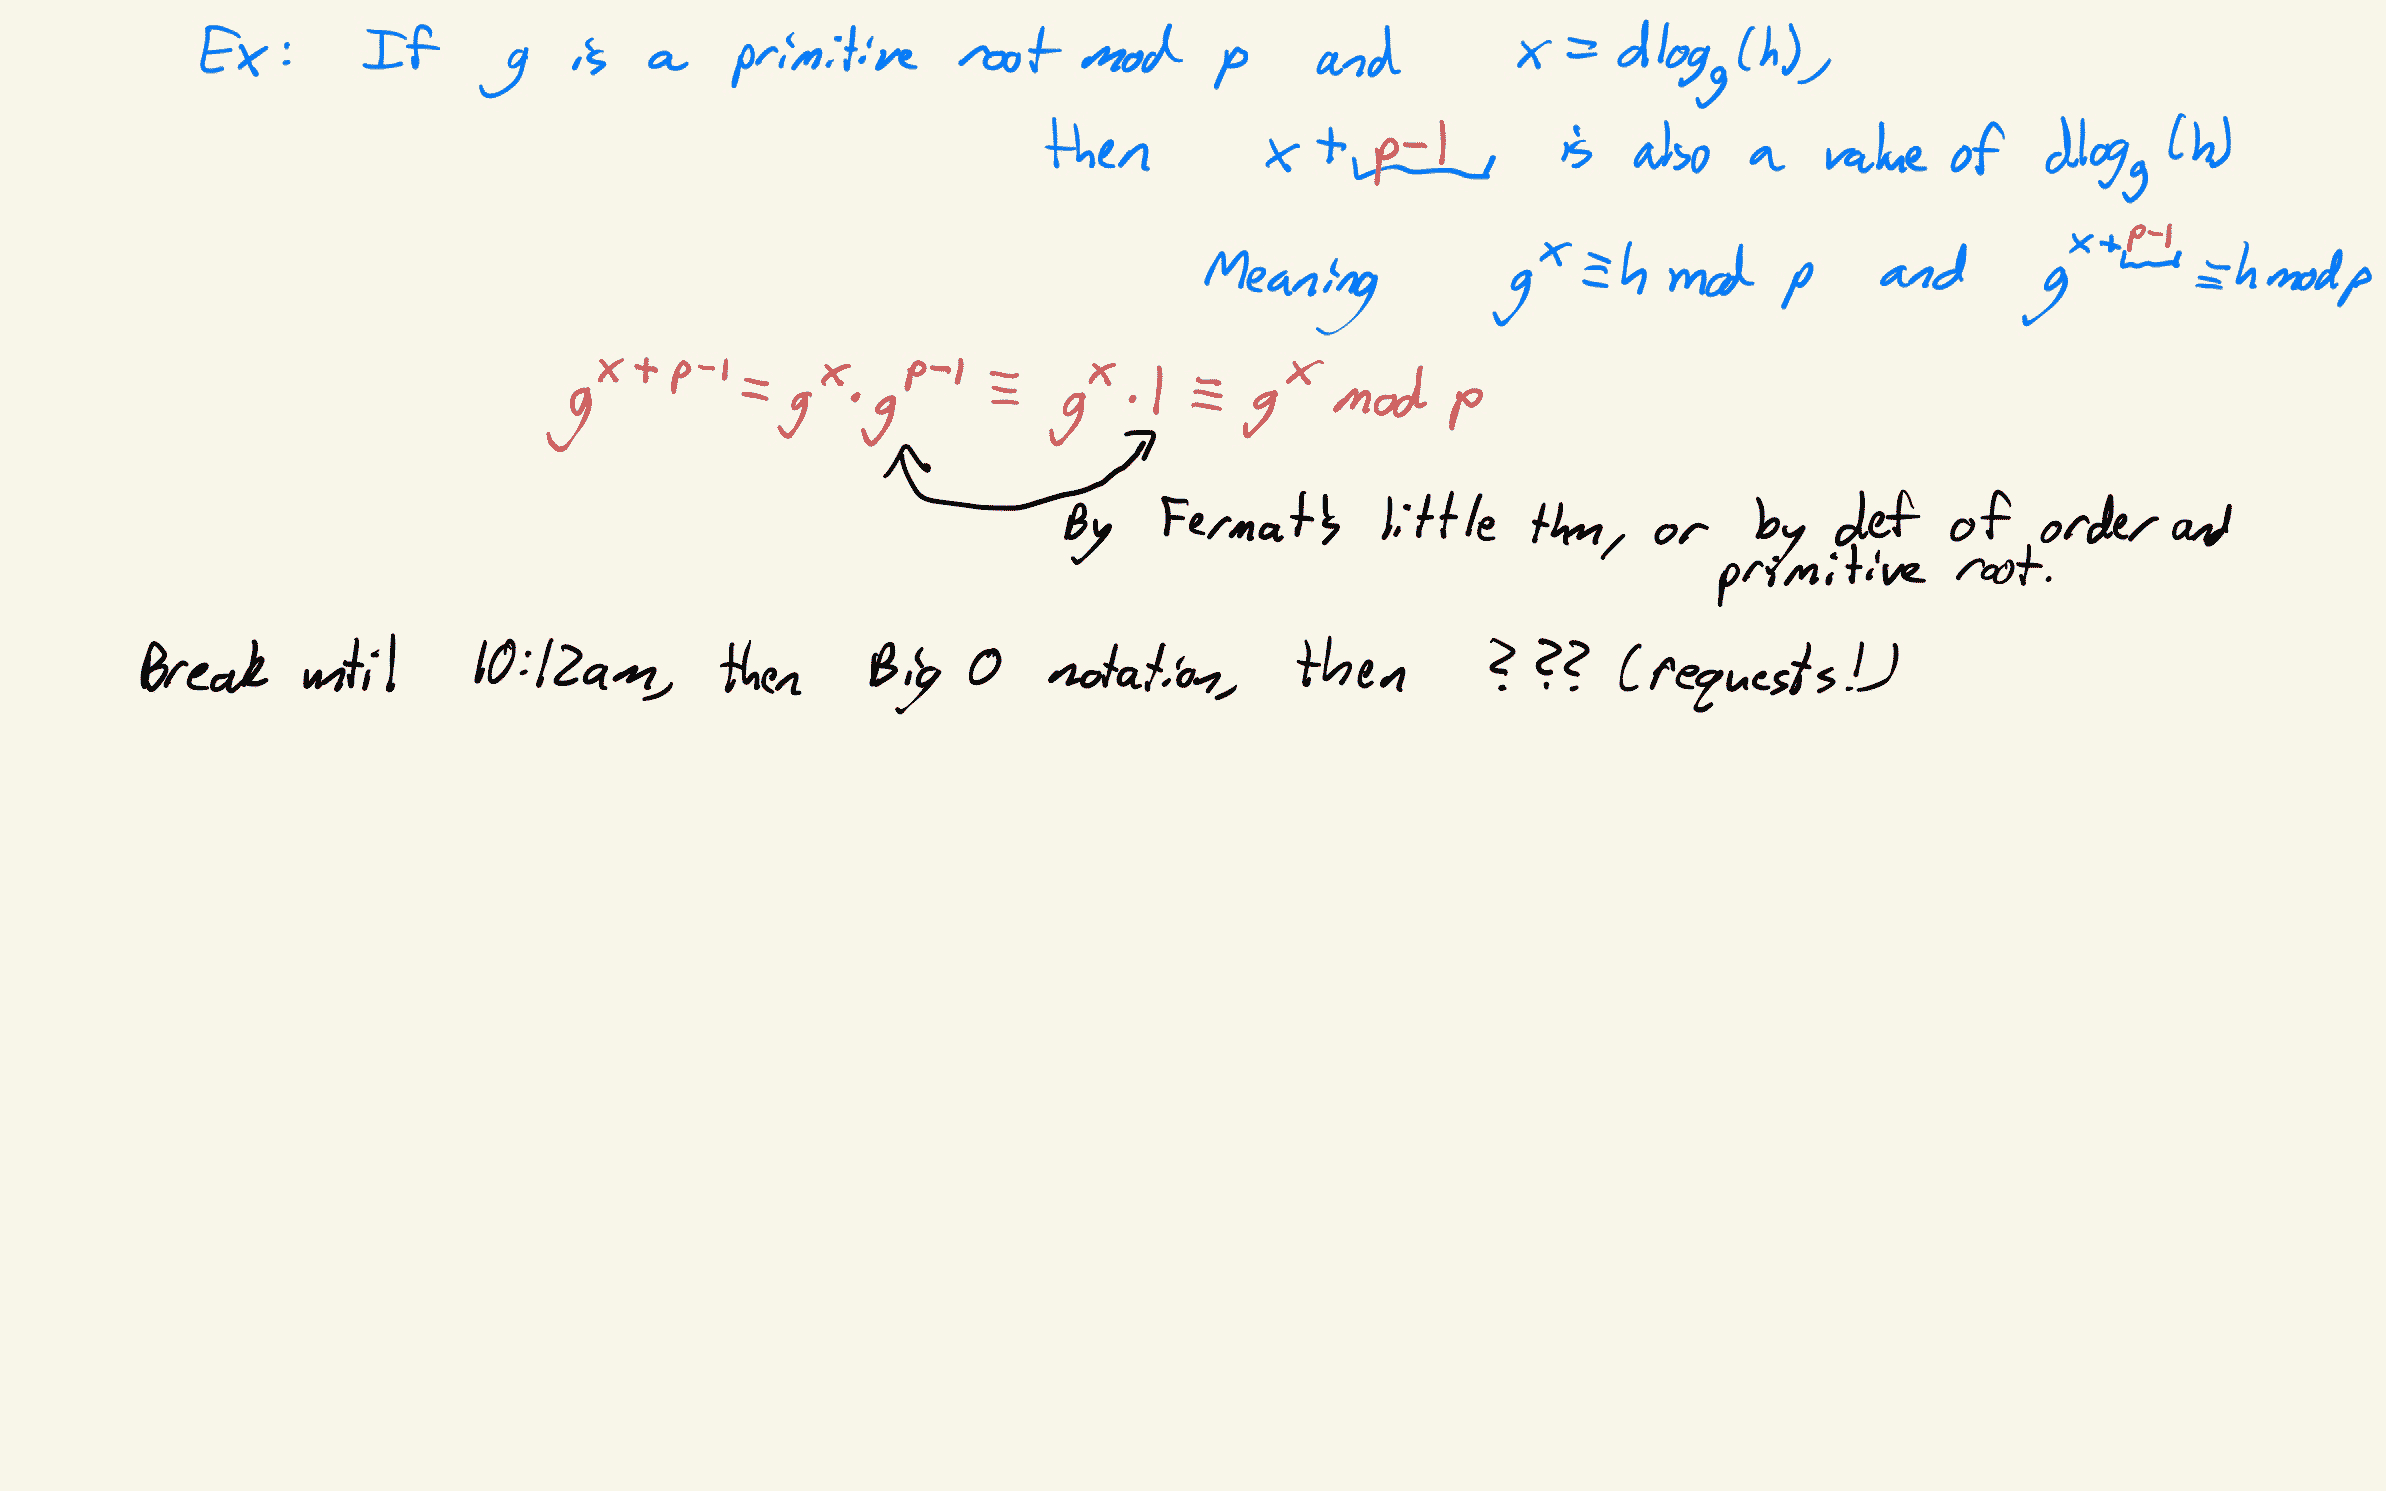 Ex: If g is a primitive root mod p and x = dlog_g(h),
then x + p-1 is also a value of dlog_g(h)
Meaning g^x ≡ h mod p and g^{x+p-1} ≡ h mod p
g^{x+p-1} = g^x · g^{p-1} ≡ g^x · 1 ≡ g^x mod p
By Fermat's little thm, or by def of order and
primitive root.
Break until 10:12am, then Big O notation, then ??? (requests!)